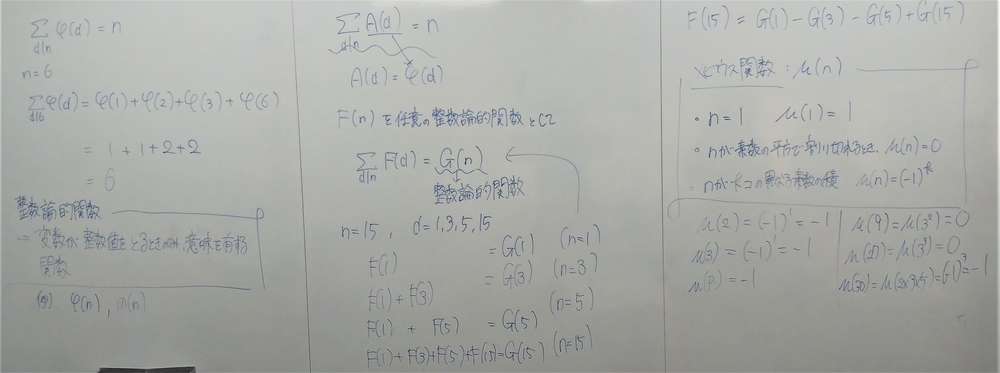 ∑ φ(d) = n
d|n
n=6
∑φ(d) = φ(1)+φ(2)+φ(3)+φ(6)
d|6
= 1 + 1 + 2 + 2
= 6
整数論的関数
→ 変数が整数値をとるときのみ、意味を有する
関数
(例) φ(n), σ(n)
∑ A(d) = n
d|n
A(d) = φ(d)
F(n) を任意の整数論的関数として
∑ F(d) = G(n)
d|n
整数論的関数
n=15, d=1,3,5,15
F(1) = G(1) (n=1)
F(1) + F(3) = G(3) (n=3)
F(1) + F(5) = G(5) (n=5)
F(1)+F(3)+F(5)+F(15)=G(15) (n=15)
F(15) = G(1) - G(3) - G(5) + G(15)
メビウス関数: μ(n)
・n=1 μ(1) = 1
・nが素数の平方で割り切れるとき、μ(n)=0
・nがkコの異なる素数の積 μ(n)=(-1)^k
μ(2) = (-1)^1 = -1
μ(3) = (-1)^1 = -1
μ(P) = -1
μ(9) = μ(3²) = 0
μ(27) = μ(3³) = 0
μ(30) = μ(2×3×5) = (-1)^3 = -1